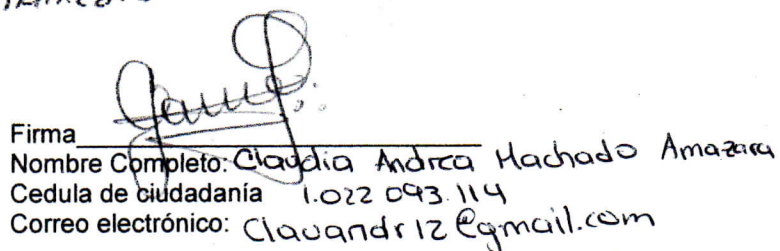 Firma
Nombre Completo: Claudia Andrea Machado Amazara
Cedula de ciudadanía 1.022 093.114
Correo electrónico: Clauandr12@gmail.com